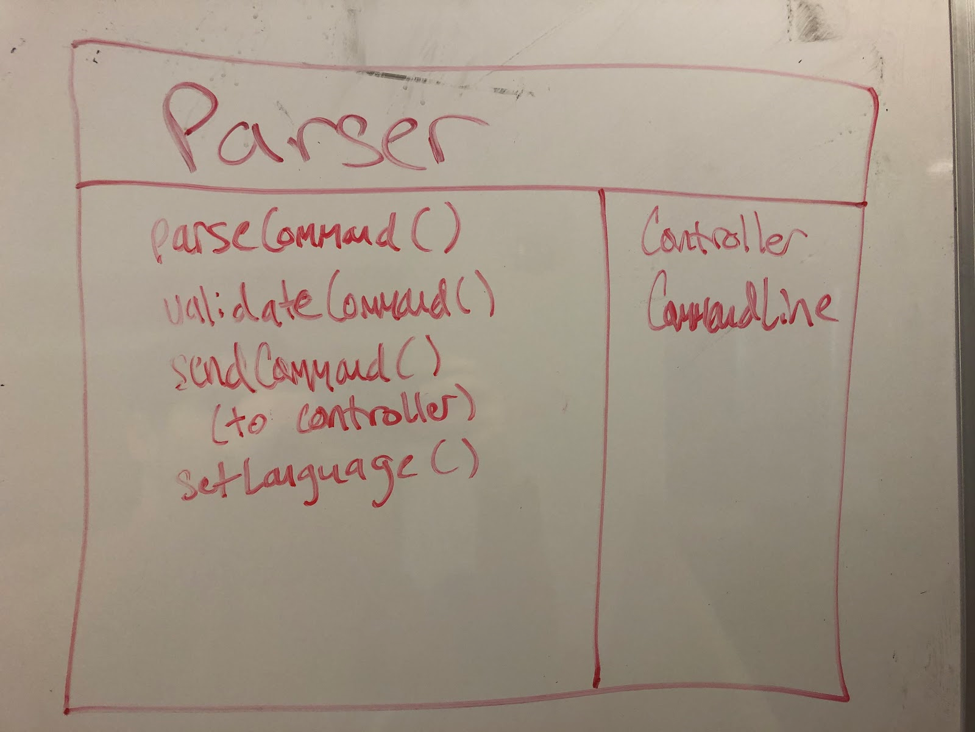 Parser
parseCommand()
validateCommand()
sendCommand()
(to controller)
setLanguage()
Controller
CommandLine